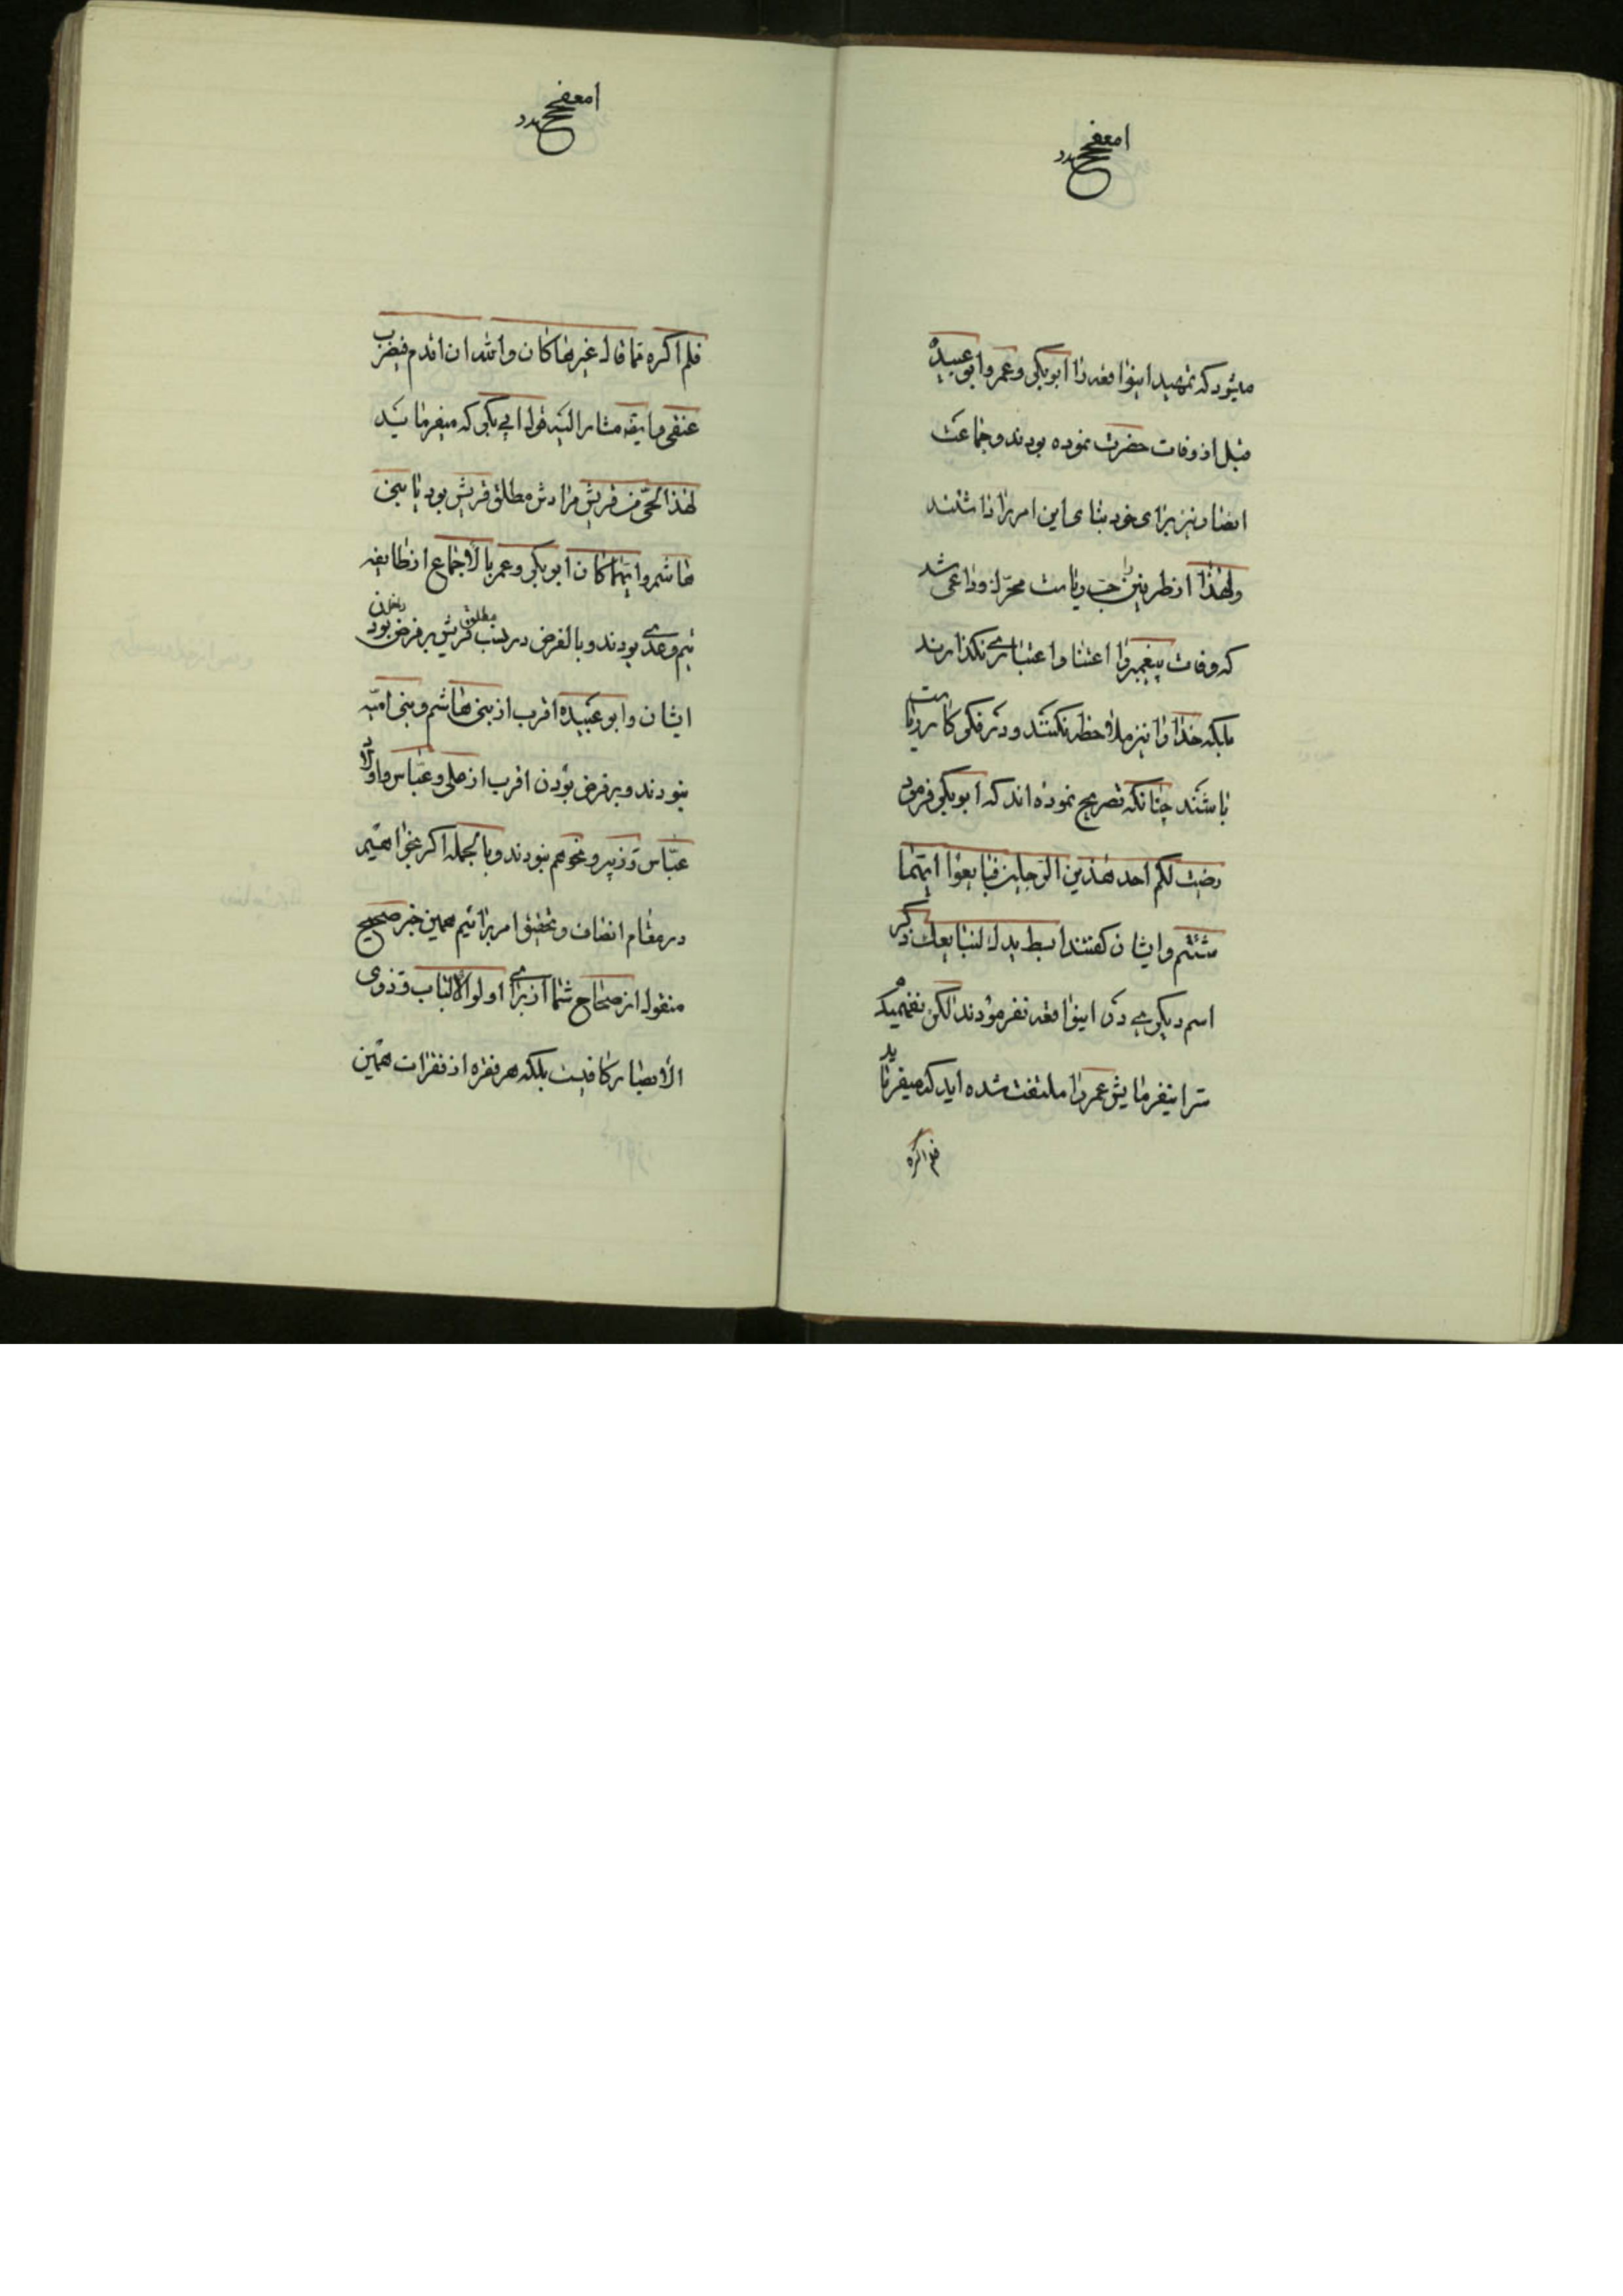 میشود که تمهید اینواقعه را ابوبکر و عمر و ابوعبیده
قبل از وفات حضرت نموده بودند و جماعت
انصار نیز برای خود بنای این امر را داشتند
ولهذا از طرفین حب ریاست محرک و داعی شد
که وفات پیغمبر را اعتنا و اعتباری نگذارند
بلکه خدا را نیز ملاحظه نکنند و در فکر کار ریاست
باشند چنانکه تصریح نموده‌اند که ابوبکر فرمود
رضیت لکم احد هذین الرجلین فبایعوا ایهما
شئتم و ایشان گفتند ابسط یدک لنبایعک ذکر
اسم دیگری در اینواقعه نفرمودند لکن نفهمیده
سر اینفرمایش عمر را ملتفت شده اید که میفرماید
فلم اکره
فلم اکره مما قال غیرها کان والله ان اقدم فیضرب
عنقی و ایضه مشار الیه قول ابی بکر که میفرماید
لهذا الحی من قریش مرادش مطلق قریش بود یا بنی
هاشم و ایهما کان ابوبکر و عمر بالاجماع از طایفه
تیم و عدی بودند و بالفرض در نسب مطلق قریش بر فرض بودن
ایشان و ابو عبیده اقرب از بنی هاشم و بنی امیه
نبودند و بر فرض بودن اقرب از علی و عباس و اولاد
عباس و زبیر و نحوهم نبودند و بالجمله اگر بخواهیم
در مقام انصاف و تحقیق امر برائیم همین خبر صحیح
منقول از صحاح شما از برای اولوا الالباب و ذوی
الابصار کافیست بلکه هر فقره از فقرات همین